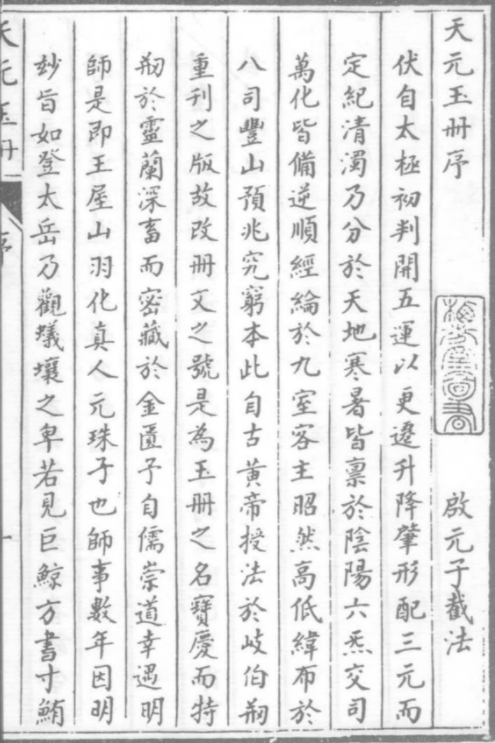 天元玉冊序
啟元子截法
伏自太極初判開五運以更遷升降肇形配三元而
定紀清濁乃分於天地寒暑皆稟於陰陽六炁交司
萬化皆備逆順經綸於九室客主昭然高低緯布於
八司豐山預兆究窮本此自古黃帝授法於岐伯刱
重刊之版故改冊文之號是為玉冊之名寶慶而特
刱於靈蘭深畜而密藏於金匱予自儒崇道幸遇明
師是即王屋山羽化真人元珠子也師事數年因明
玅旨如登太岳乃觀蟻壤之卑若見巨鯨方書寸鮪
天元玉冊
序
一